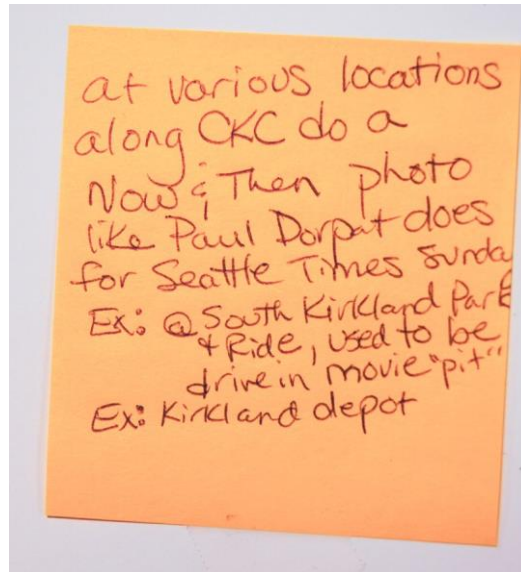 at various locations
along CKC do a
Now & Then photo
like Paul Dorpat does
for Seattle Times Sunda
Ex: @ South Kirkland Park
+ Ride, used to be
drive in movie "pit"
Ex: Kirkland depot